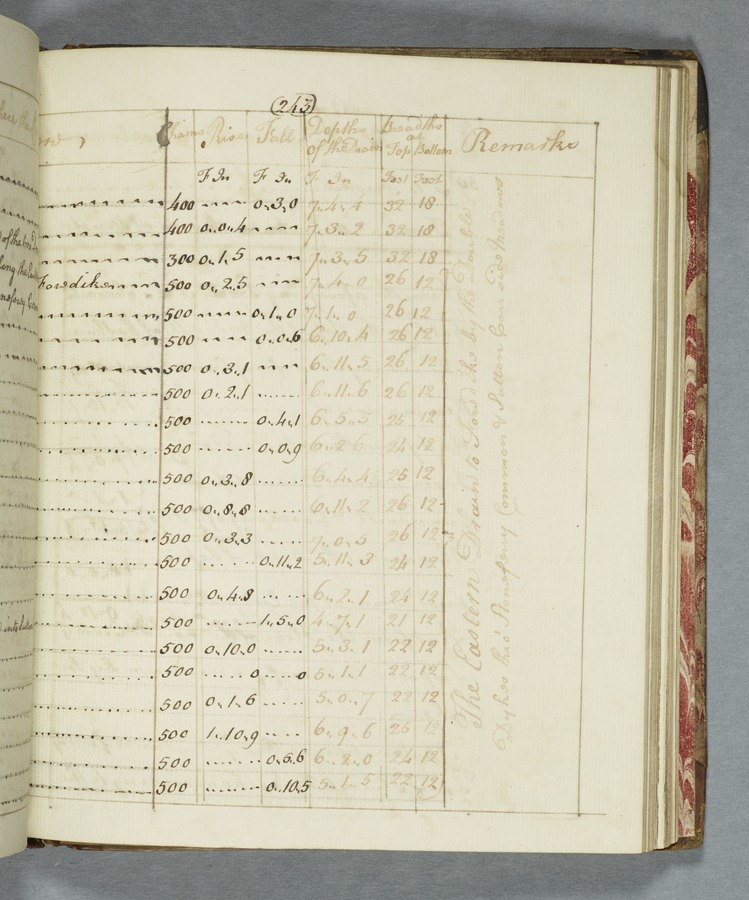 243
Chains Rise Fall Depths of the Drain Breadths at Top Bottom Remarks
F In F In F In Feet Feet
400 ---- 0,,3,,0 7,,4,,4 32 18
400 0,,0,,4 ---- 7,,3,,2 32 18
300 0,,1,,5 ---- 7,,3,,5 32 18
Forsdike 500 0,,2,,5 ---- 7,,4,,0 26 12
500 ---- 0,,1,,0 7,,1,,0 26 12
500 ---- 0,,0,,6 6,,10,,4 26 12
500 0,,3,,1 6,,11,,5 26 12
500 0,,2,,1 ..... 6,,11,,6 26 12
500 ....... 0,,4,,1 6,,5,,5 25 12
500 ....... 0,,0,,9 6,,2,,6 24 12
500 0,,3,,8 ...... 6,,4,,4 25 12
500 0,,8,,8 ..... 6,,11,,2 26 12
500 0,,3,,3 ..... 7,,0,,5 26 12
500 ...... 0,,11,,2 5,,11,,3 24 12
500 0,,4,,8 ..... 6,,2,,1 24 12
500 ...... 1,,5,,0 4,,7,,1 21 12
500 0,,10,,0 ...... 5,,3,,1 22 12
500 ..... 0 ..... 0 5,,1,,1 22 12
500 0,,1,,6 ...... 5,,0,,7 22 12
500 1,,10,,9 ..... 6,,9,,6 25 12
500 ....... 0,,5,,6 6,,2,,0 24 12
500 ....... 0,,10,,5 5,,1,,5 22 12
The Eastern Drain to Forsdike by the Double
Dykes thro' Stoneferry Common & Sutton Carr side Meadows